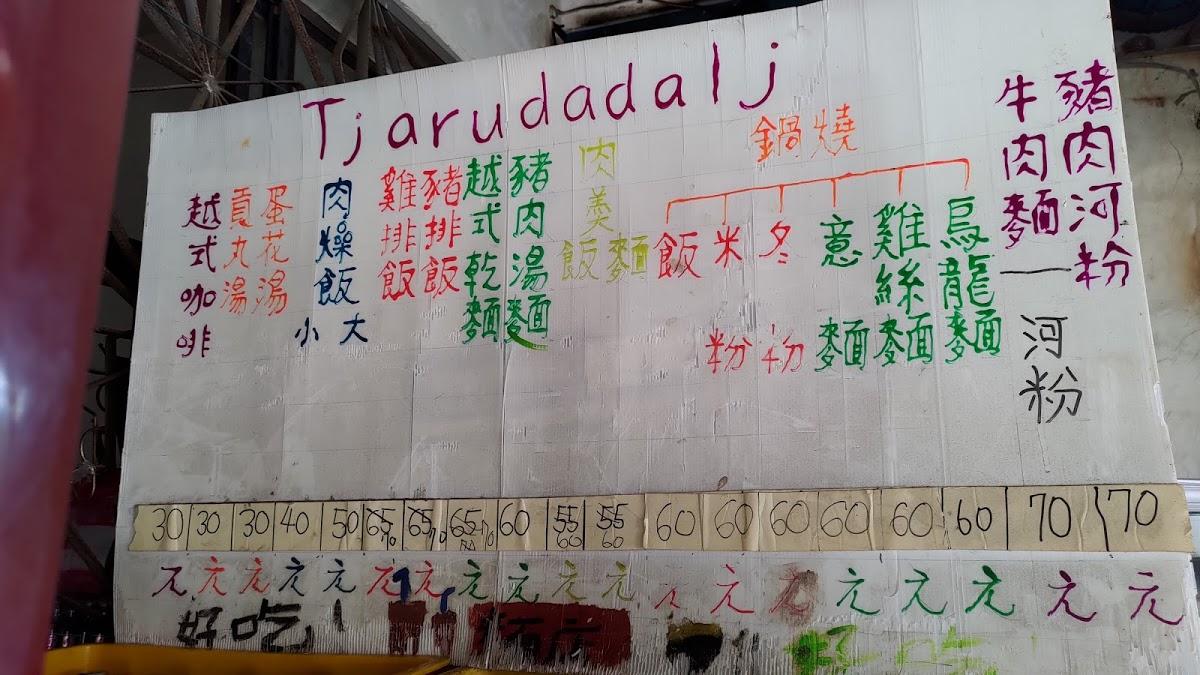 Tjarudadalj
豬肉河粉
牛肉麵—河粉
鍋燒
烏龍麵
雞絲麵
意麵
冬粉
米粉
飯
肉羹
飯 麵
豬肉湯麵
越式乾麵
豬排飯
雞排飯
肉燥飯
小 大
蛋花湯
貢丸湯
越式咖啡
30 30 30 40 50 65 65 65 60 55 55 60 60 60 60 60 60 70 70
60 60
元 元 元 元 元 元 元 元 元 元 元 元 元 元 元 元 元 元 元
好吃